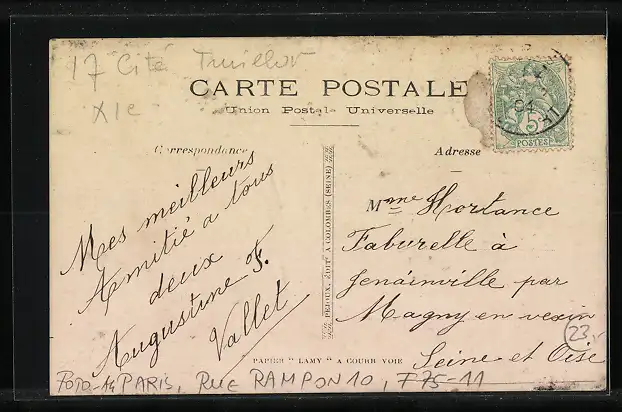 17 Cité Truillot
XIe
CARTE POSTALE
Union Postale Universelle
Correspondance
Adresse
5c
POSTES
04
Mes meilleurs
Amitié a tous
deux
Augustine F.
Vallet
PEJOUX, ÉDIT. A COLOMBES (SEINE)
Mme Hortance
Faburelle à
Jenainville par
Magny en vexin
Seine et Oise
23,-
PAPIER " LAMY " A COURB VOIE
PARIS, RUE RAMPON 10, F75-11